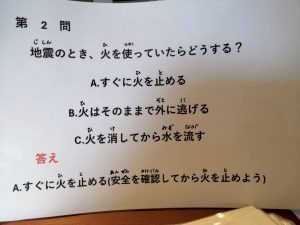 第 2 問
地震のとき、火を使っていたらどうする?
A.すぐに火を止める
B.火はそのままで外に逃げる
C.火を消してから水を流す
答え
A.すぐに火を止める(安全を確認してから火を止めよう)